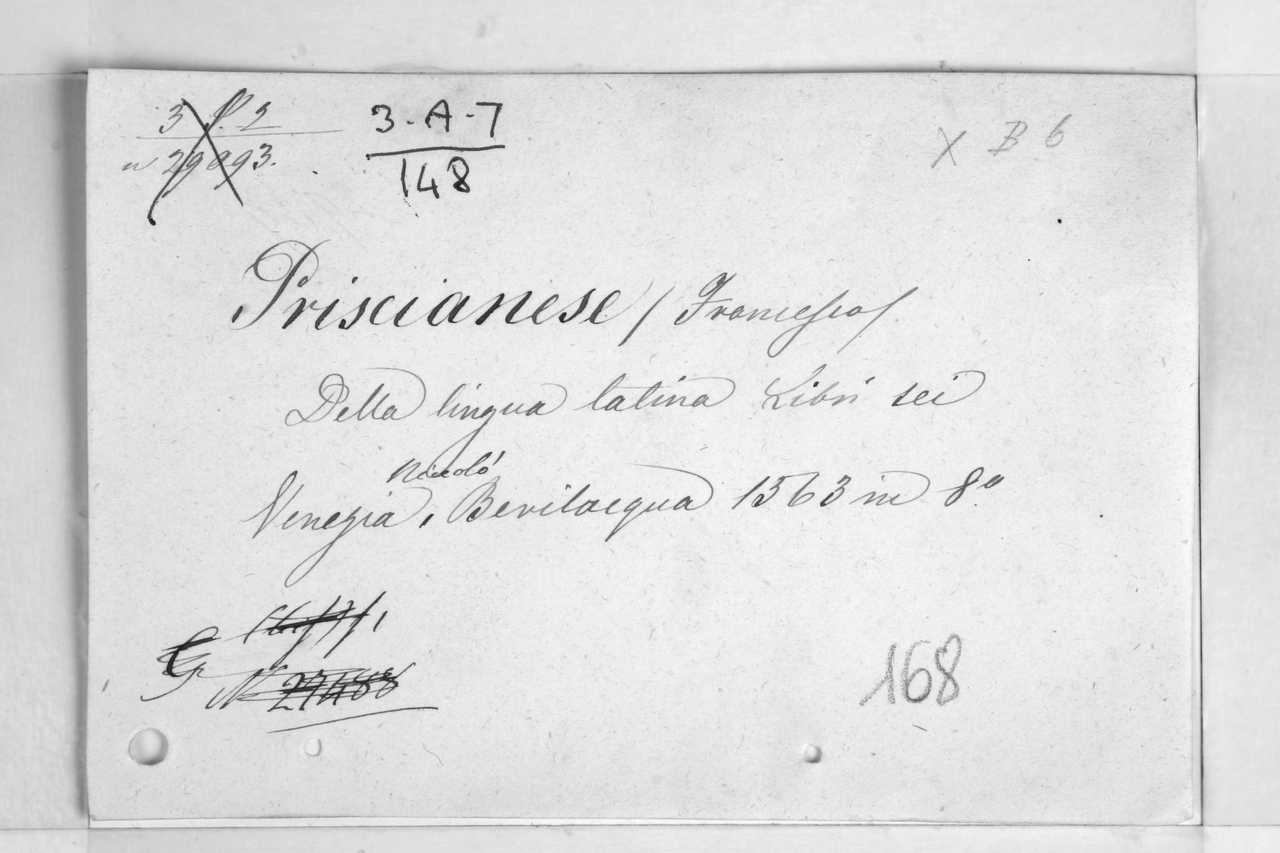 3 P. 2
n 29893.
3-A-7
148
X B 6
Priscianese / Francesco /
Della lingua latina Libri sei
Venezia, Niccolò Bevilacqua 1563 in 8º
N 27488
168